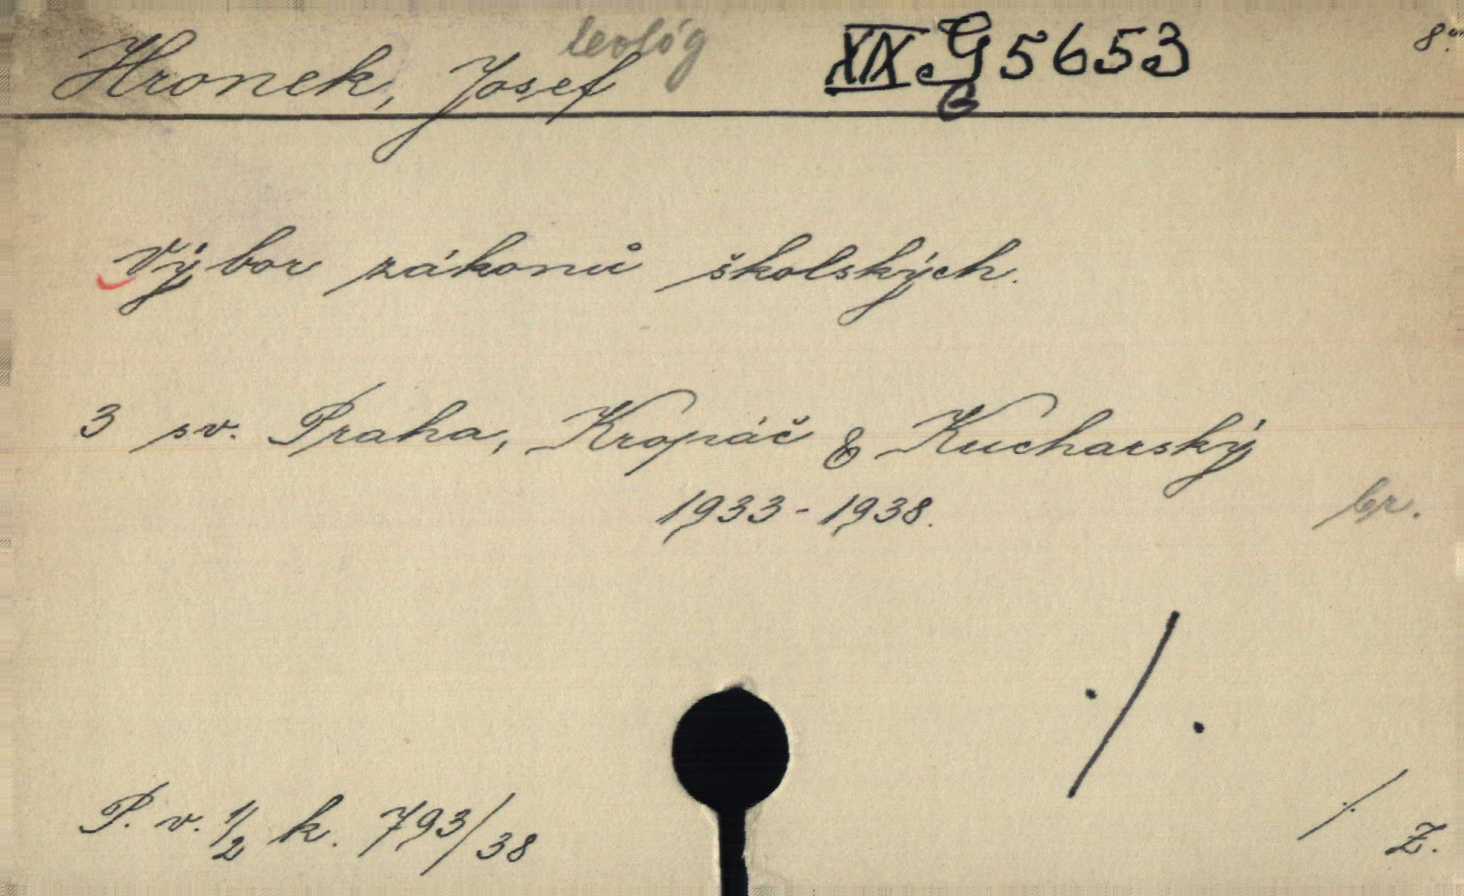 Hronek, Josef teológ XIX G 5653 8°
Výbor zákonů školských.
3 sv. Praha, Kropáč & Kucharský
1933-1938.
br.
·/·
P. v. 1/2 k. 793/38
·/· Z.